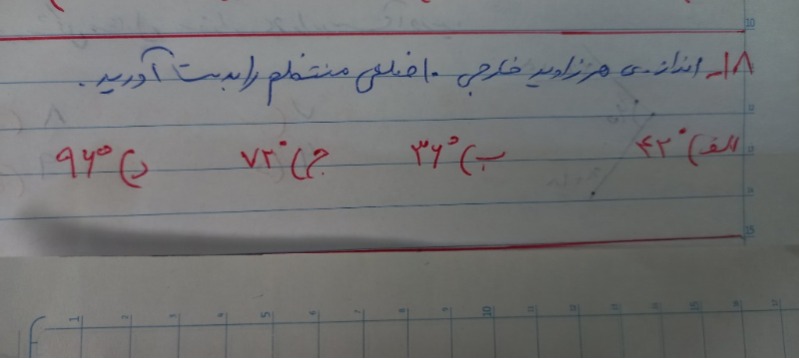 ۱۸- اندازه‌ی هر زاویه خارجی ۱۰ ضلعی منتظم را بدست آورید.
الف) ۴۲° ب) ۳۶° ج) ۷۲° د) ۹۶°